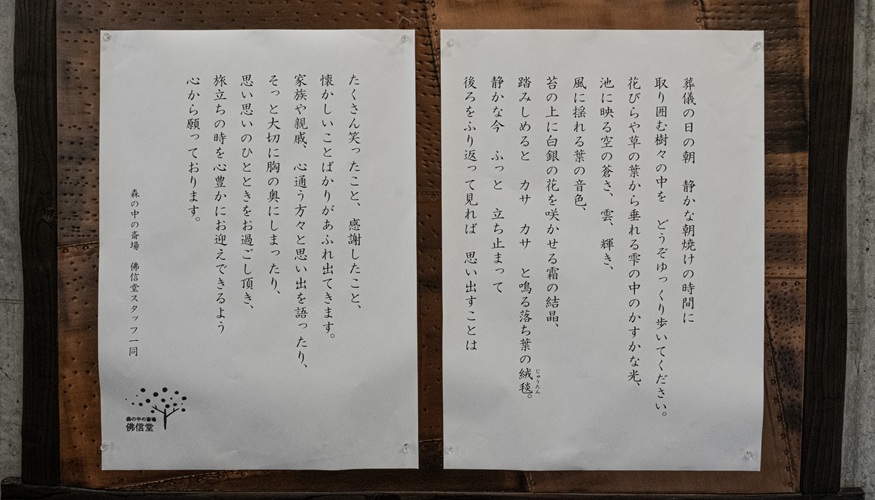 葬儀の日の朝　静かな朝焼けの時間に
取り囲む樹々の中を　どうぞゆっくり歩いてください。
花びらや草の葉から垂れる雫の中のかすかな光、
池に映る空の蒼さ、雲、輝き、
風に揺れる葉の音色、
苔の上に白銀の花を咲かせる霜の結晶、
踏みしめると　カサ　カサ　と鳴る落ち葉の絨毯。
じゅうたん
静かな今　ふっと　立ち止まって
後ろをふり返って見れば　思い出すことは
たくさん笑ったこと、感謝したこと、
懐かしいことばかりがあふれ出てきます。
家族や親戚、心通う方々と思い出を語ったり、
そっと大切に胸の奥にしまったり、
思い思いのひとときをお過ごし頂き、
旅立ちの時を心豊かにお迎えできるよう
心から願っております。
森の中の斎場　佛信堂スタッフ一同
森の中の斎場
佛信堂